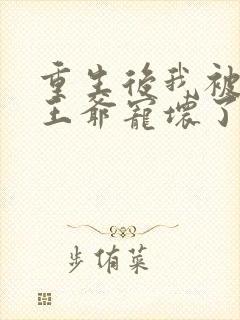 重生後我被
王爺寵壞了
步侑菜